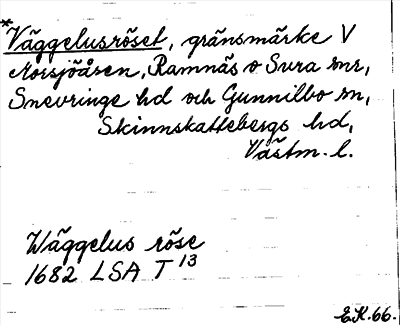 *Väggelusröset, gränsmärke V
Morsjöåsen, Ramnäs o Sura snr,
Snevringe hd och Gunnilbo sn,
Skinnskattebergs hd,
Västm. l.
Wäggelus röse
1682 LSA T 13
E.K. 66.